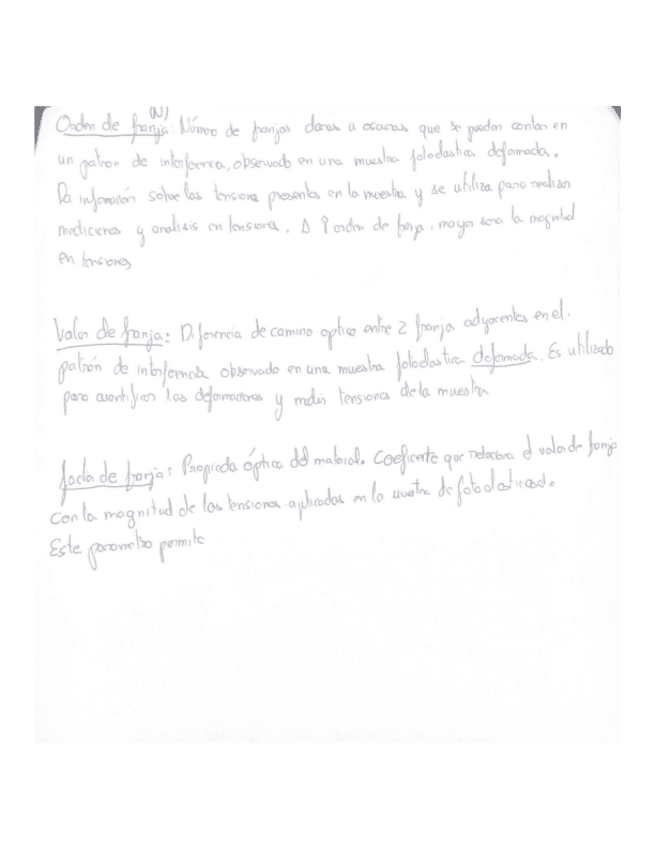 (N)
Orden de franja: Número de franjas claras u oscuras que se pueden contar en
un patron de interferencia, observado en una muestra fotoelastica deformada.
Da información sobre las tensiones presentes en la muestra y se utiliza para realizar
mediciones y analisis en tensiones. A ↑ orden de franja, mayor sera la magnitud
en tensiones
Valor de franja: Diferencia de camino optico entre 2 franjas adyacentes en el.
patrón de interferencia observado en una muestra fotoelastica deformada. Es utilizado
para cuantificar las deformaciones y medir tensiones de la muestra
de franja: Propiedad óptica del material. Coeficiente que relaciona el valor de franja
con la magnitud de las tensiones aplicadas en la muestra de fotoelasticidad.
Este parametro permite